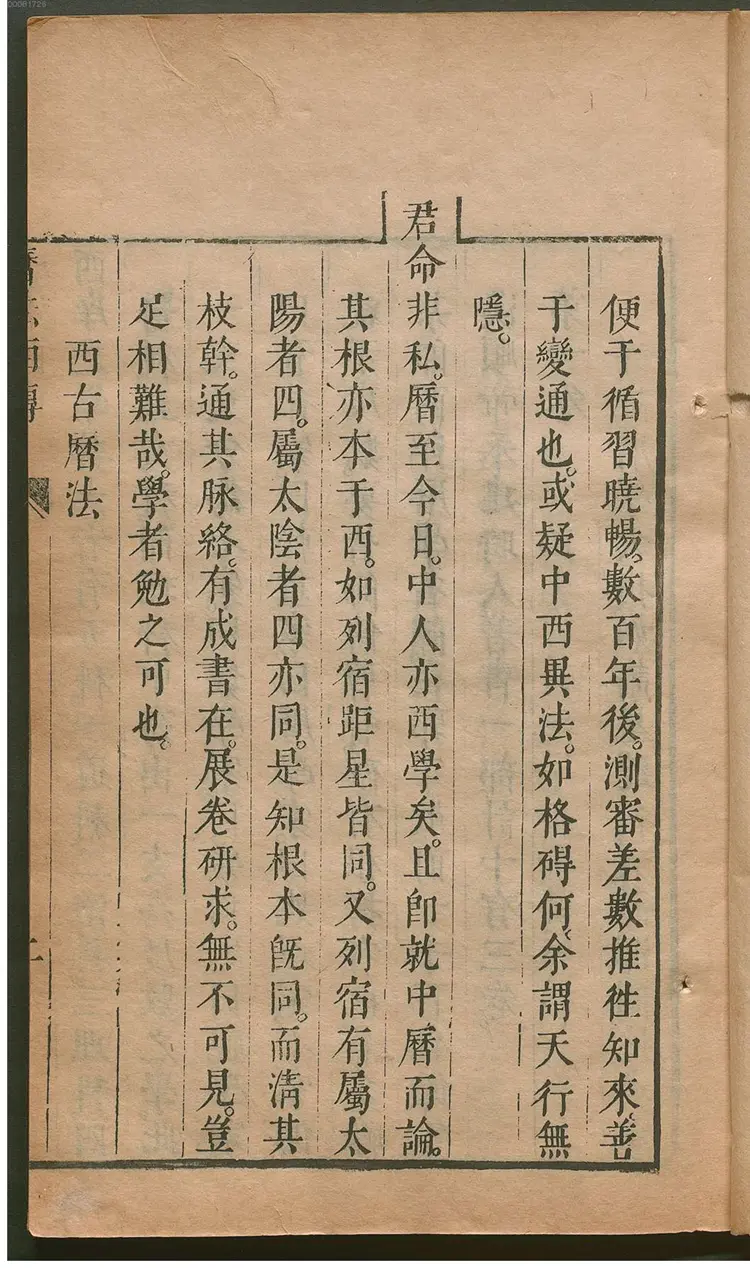 便于循習曉暢。數百年後。測審差數推徃知來。善
于變通也。或疑中西異法。如格碍何。余謂天行無
隱。
君命非私。曆至今日。中人亦西學矣。且卽就中曆而論。
其根亦本于西。如列宿距星皆同。又列宿有屬太
陽者四。屬太陰者四亦同。是知根本旣同。而淸其
枝幹。通其脉絡。有成書在。展卷研求。無不可見。豈
足相難哉。學者勉之可也。
西古曆法
00061728